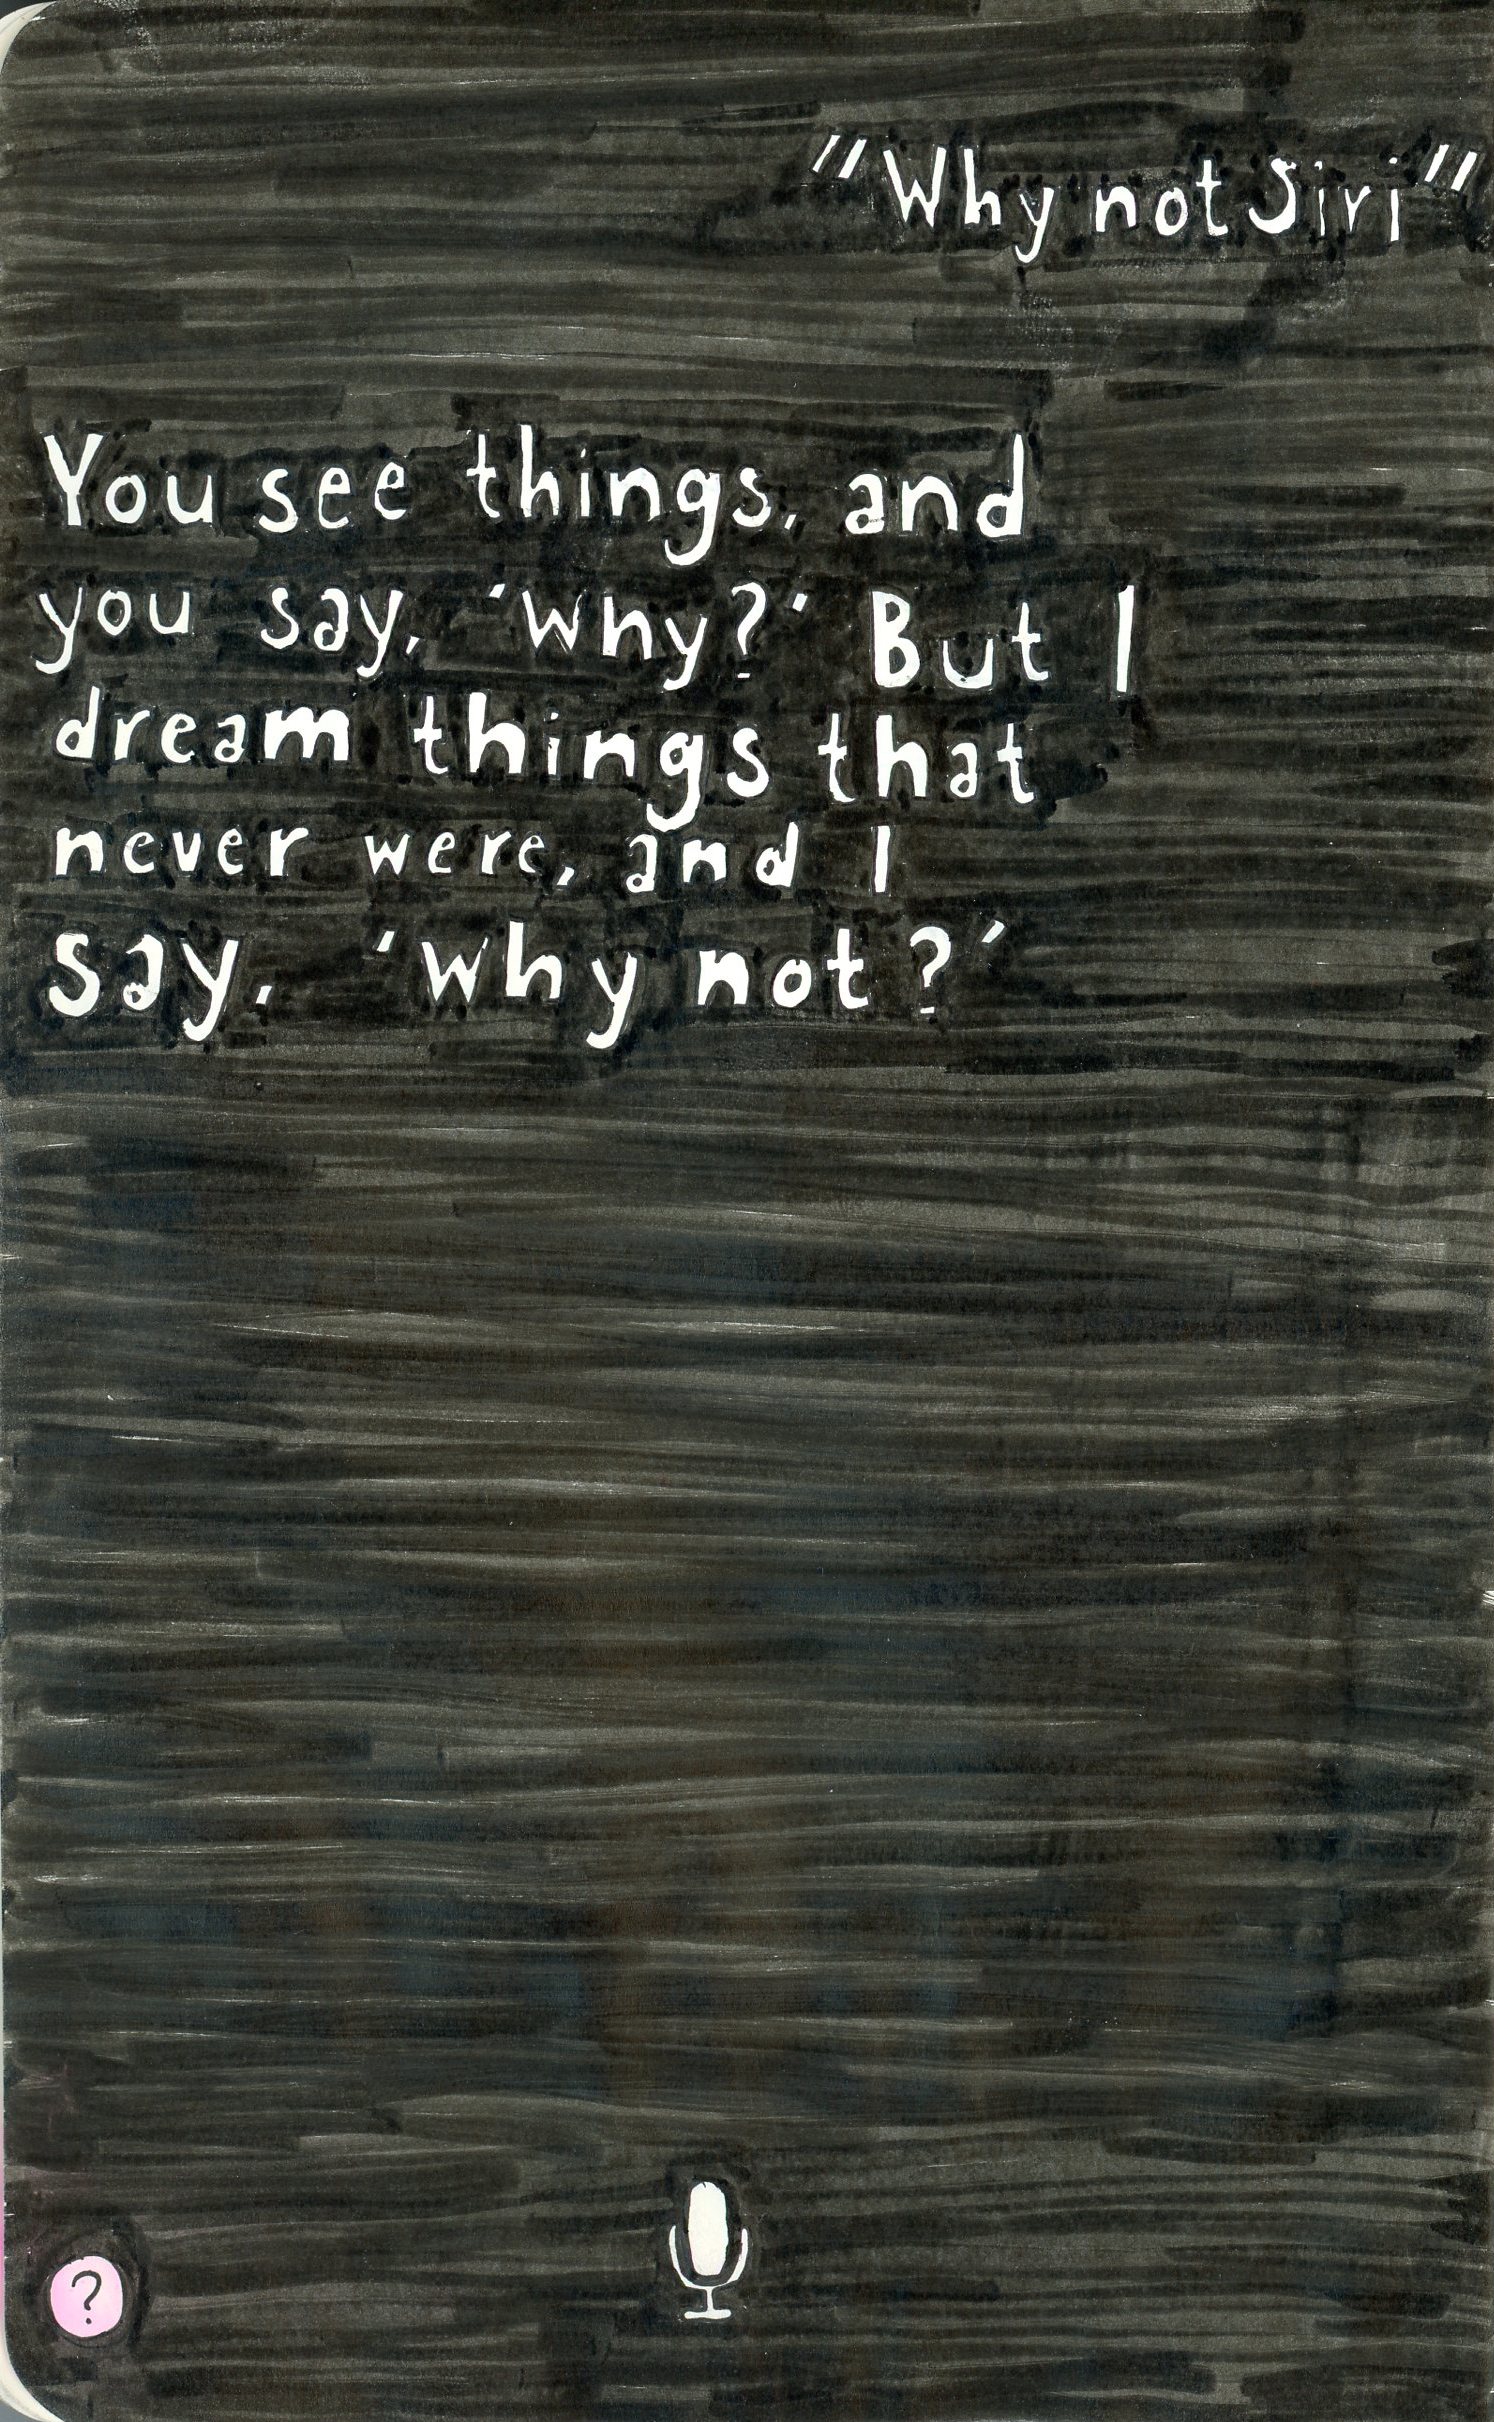 "Why not Siri"
You see things, and
you say, 'why?' But I
dream things that
never were, and I
say, 'why not?'
?